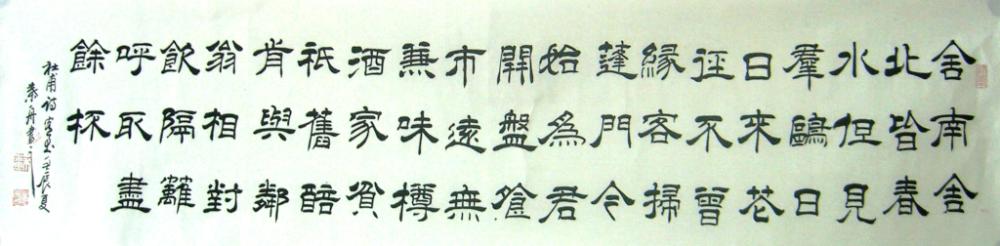 舍南舍
北皆春
水但見
羣鷗日
日來花
徑不曾
緣客掃
蓬門今
始為君
開盤飧
市遠無
兼味樽
酒家貧
祇舊醅
肯與鄰
翁相對
飲隔籬
呼取盡
餘杯
杜甫詩客至壬辰夏